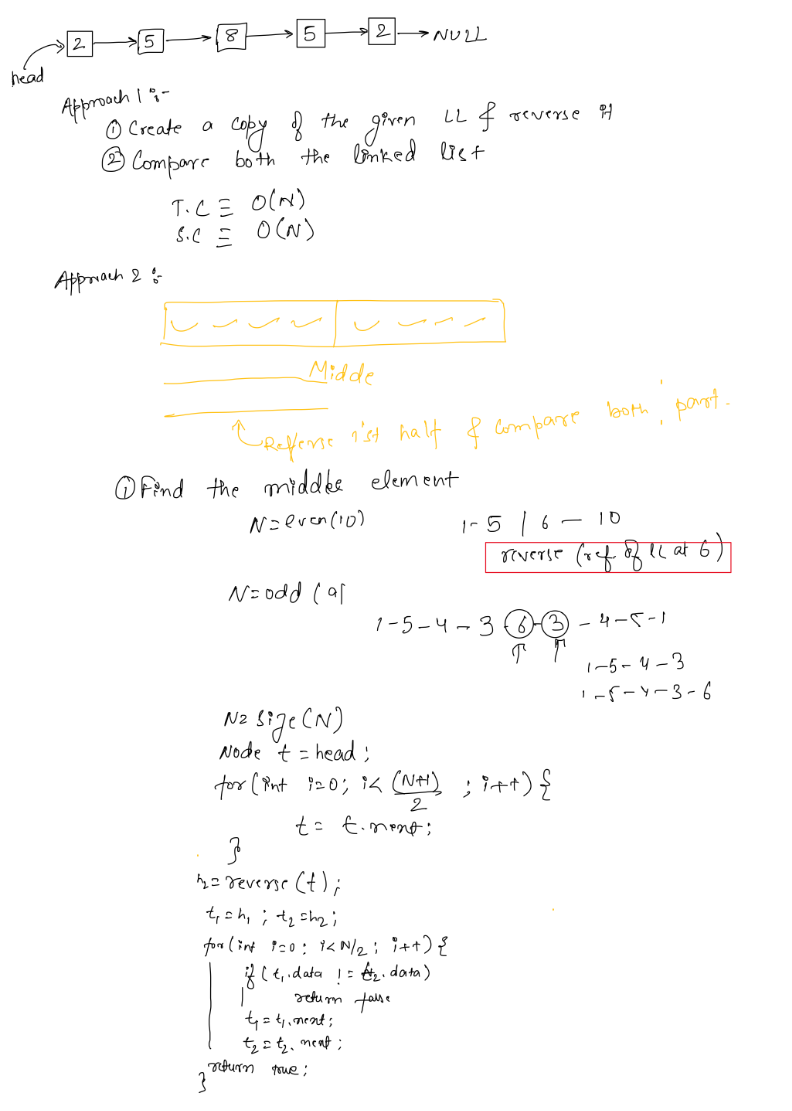 2 → 5 → 8 → 5 → 2 → NULL
head
Approach 1 :-
① Create a copy of the given LL & reverse it
② Compare both the linked list
T.C ≡ O(N)
S.C ≡ O(N)
Approach 2 :-
Midde
Reverse 1'st half & compare both part.
① Find the middle element
N = even(10) 1-5 | 6 - 10
reverse (ref of LL at 6)
N = odd (9
1-5-4-3 6-3-4-5-1
1-5-4-3
1-5-4-3-6
N = size(N)
Node t = head;
for(int i=0; i< (N+1)/2 ; i++) {
t = t.next;
}
h2 = reverse(t);
t1 = h1 ; t2 = h2;
for(int i=0; i<N/2; i++) {
if (t1.data != t2.data)
return false
t1 = t1.next;
t2 = t2.next;
return true;
}